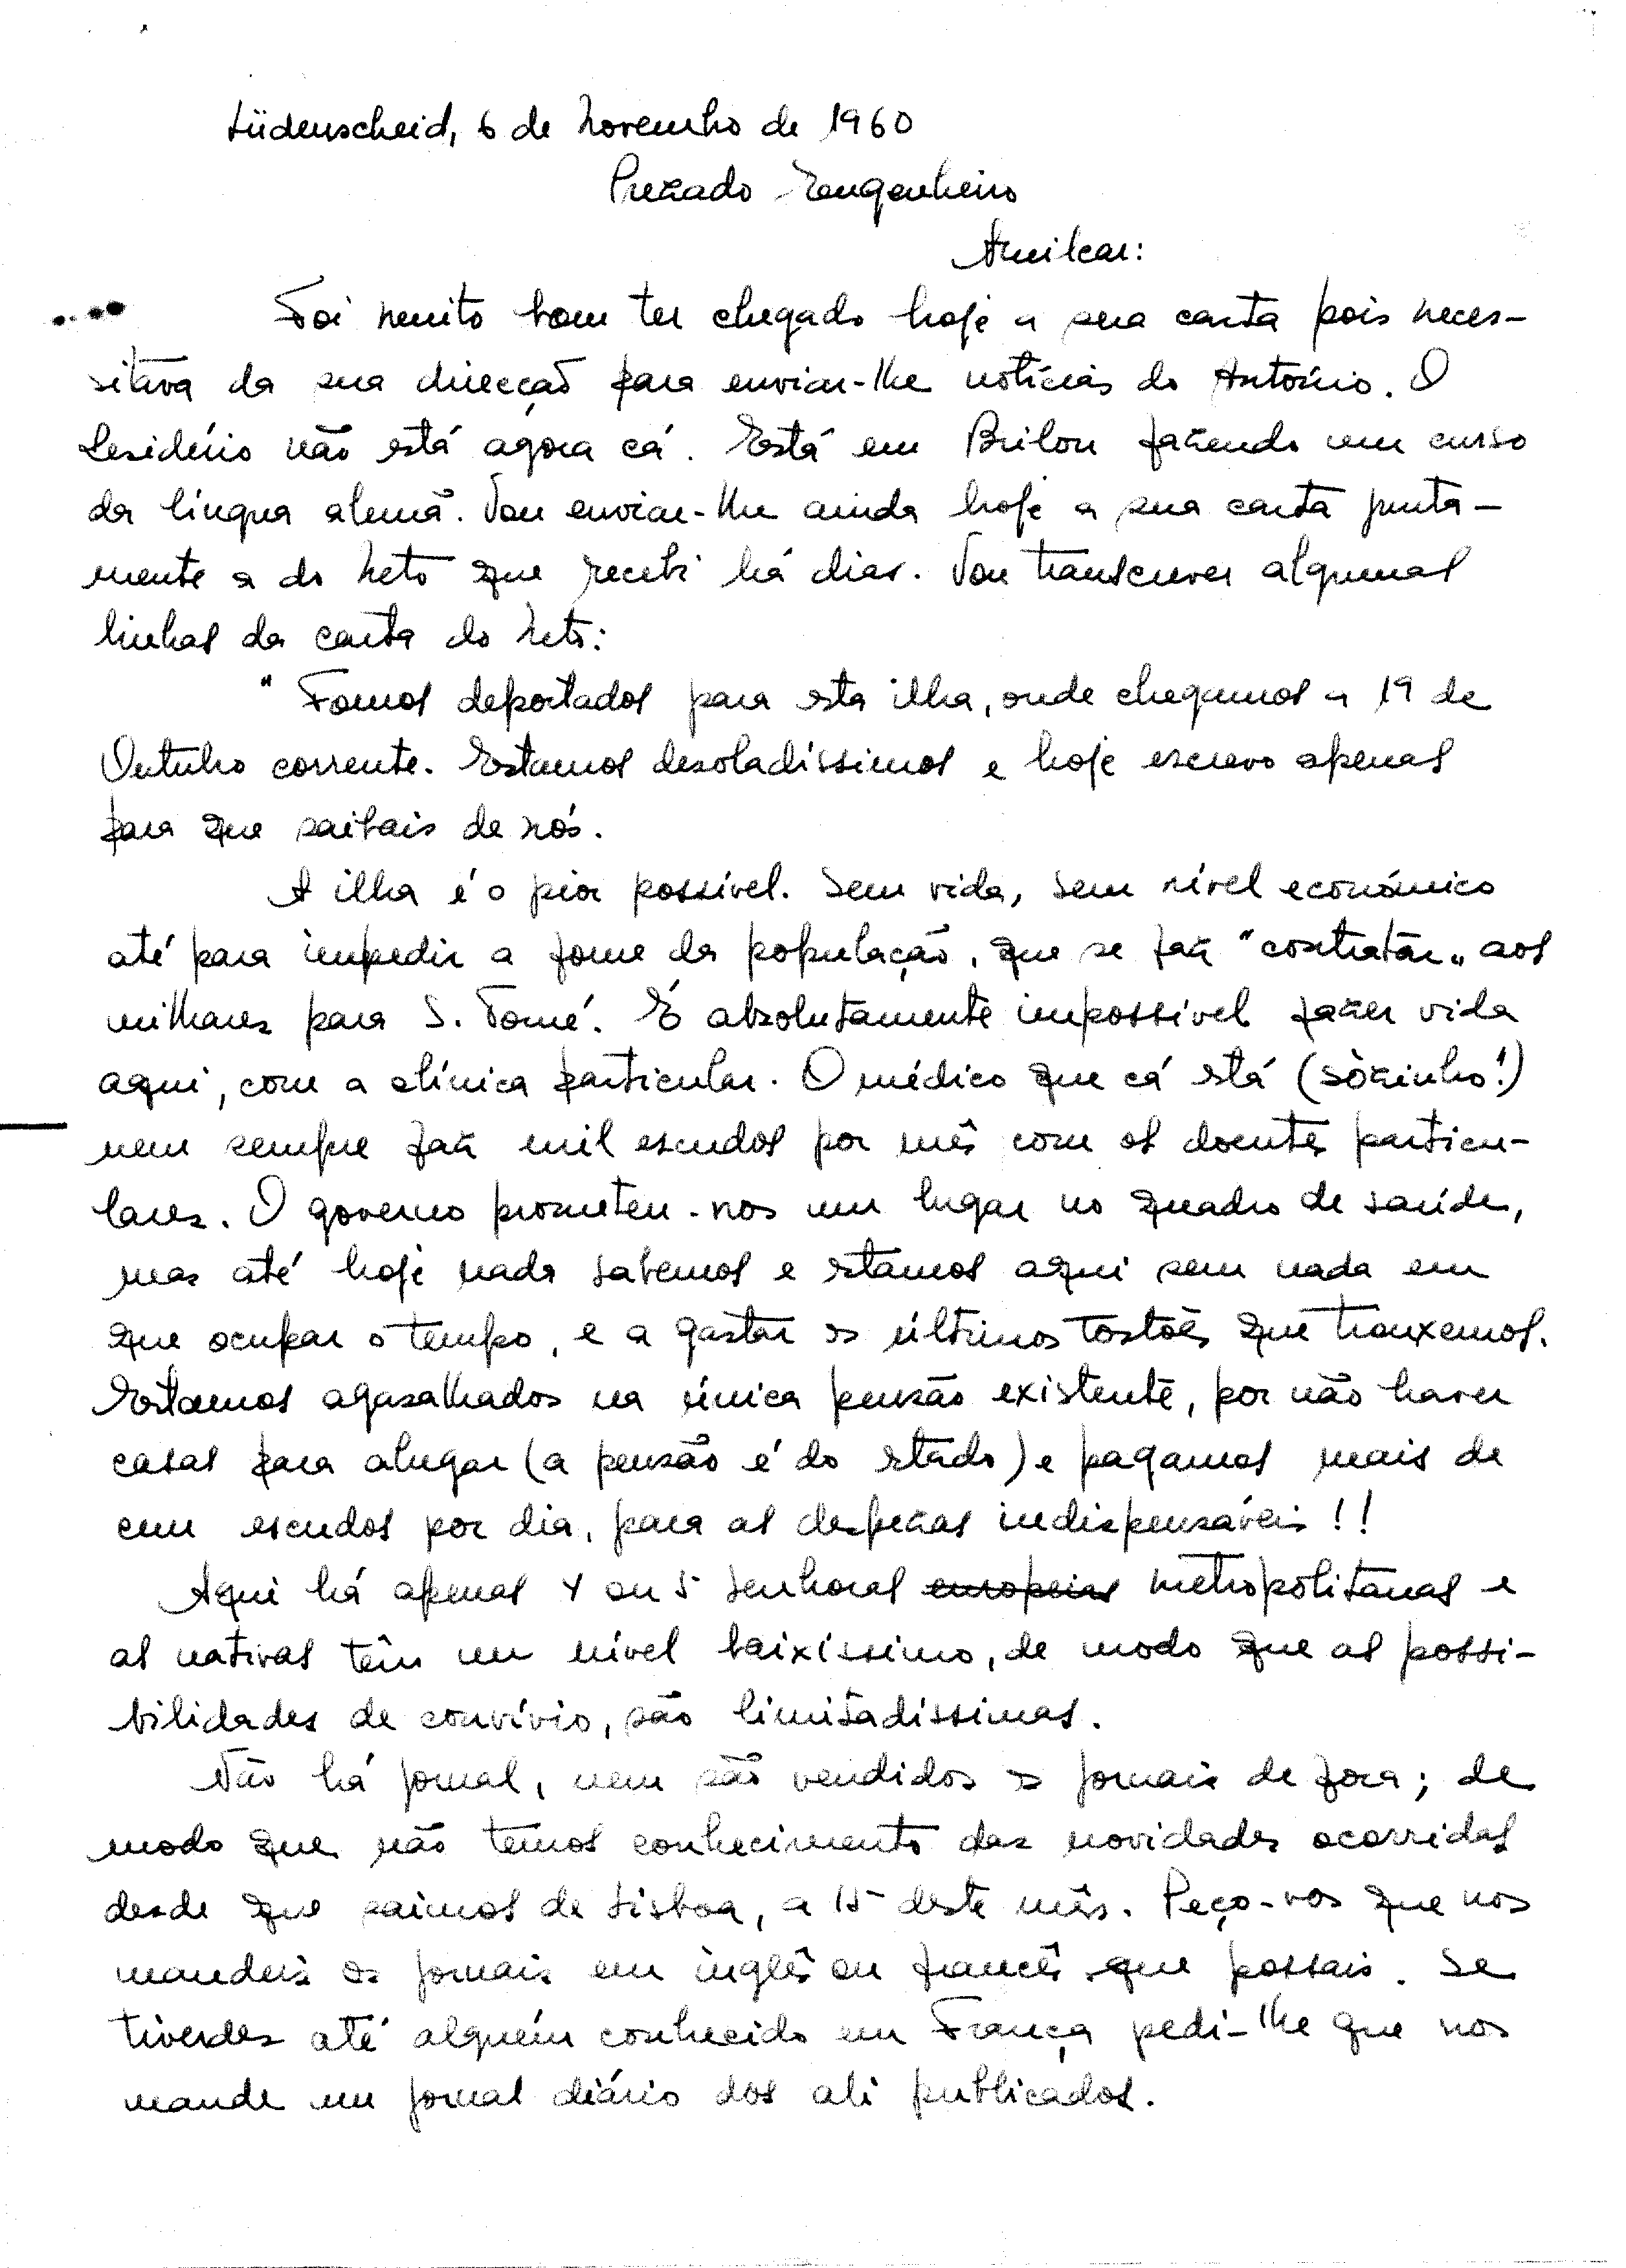 Lüdenscheid, 6 de Novembro de 1960
Prezado Engenheiro
Amilcar:
Foi muito bom ter chegado hoje a sua carta pois neces-
sitava da sua direcção para enviar-lhe notícias do António. O
Desidério não está agora cá. Está em Brilon fazendo um curso
da língua alemã. Vou enviar-lhe ainda hoje a sua carta junta-
mente a do Neto que recebi há dias. Vou transcrever algumas
linhas da carta do Neto:
"Fomos deportados para esta ilha, onde chegamos a 19 de
Outubro corrente. Estamos desoladíssimos e hoje escrevo apenas
para que saibais de nós.
A ilha é o pior possível. Sem vida, sem nível económico
até para impedir a fome da população, que se faz "contratar" aos
milhares para S. Tomé. É absolutamente impossível fazer vida
aqui, com a clínica particular. O médico que cá está (sòzinho!)
nem sempre faz mil escudos por mês com os doentes particu-
lares. O governo prometeu-nos um lugar no quadro de saúde,
mas até hoje nada sabemos e estamos aqui sem nada em
que ocupar o tempo, e a gastar os últimos tostões que trouxemos.
Estamos agasalhados na única pensão existente, por não haver
casas para alugar (a pensão é do estado) e pagamos mais de
cem escudos por dia, para as despezas indispensáveis!!
Aqui há apenas 4 ou 5 senhoras europeias metropolitanas e
as nativas têm um nível baixíssimo, de modo que as possi-
bilidades de convívio, são limitadíssimas.
Não há jornal, nem são vendidos os jornais de fora; de
modo que não temos conhecimento das novidades ocorridas
desde que saimos de Lisboa, a 15 deste mês. Peço-vos que nos
mandeis os jornais em inglês ou francês que possais. Se
tiverdes até alguém conhecido em França pedi-lhe que nos
mande um jornal diário dos ali publicados.